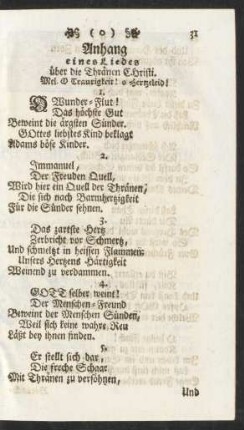 (0) 31
Anhang
eines Liedes
über die Thränen Christi.
Mel. O Traurigkeit! o Hertzeleid!
1.
O Wunder-Flut!
Das höchste Gut
Beweint die ärgsten Sünder.
GOttes liebstes Kind beklagt
Adams böse Kinder.
2.
Immanuel,
Der Freuden Quell,
Wird hier ein Quell der Thränen,
Die sich nach Barmhertzigkeit
Für die Sünder sehnen.
3.
Das zartste Hertz
Zerbricht vor Schmertz,
Und schmeltzt in heissen Flammen:
Unsers Hertzens Härtigkeit
Weinend zu verdammen.
4.
GOTT selber weint!
Der Menschen-Freund
Beweint der Menschen Sünden,
Weil sich keine wahre Reu
Läßt bey ihnen finden.
5.
Er stellt sich dar,
Die freche Schaar
Mit Thränen zu versöhnen,
Und